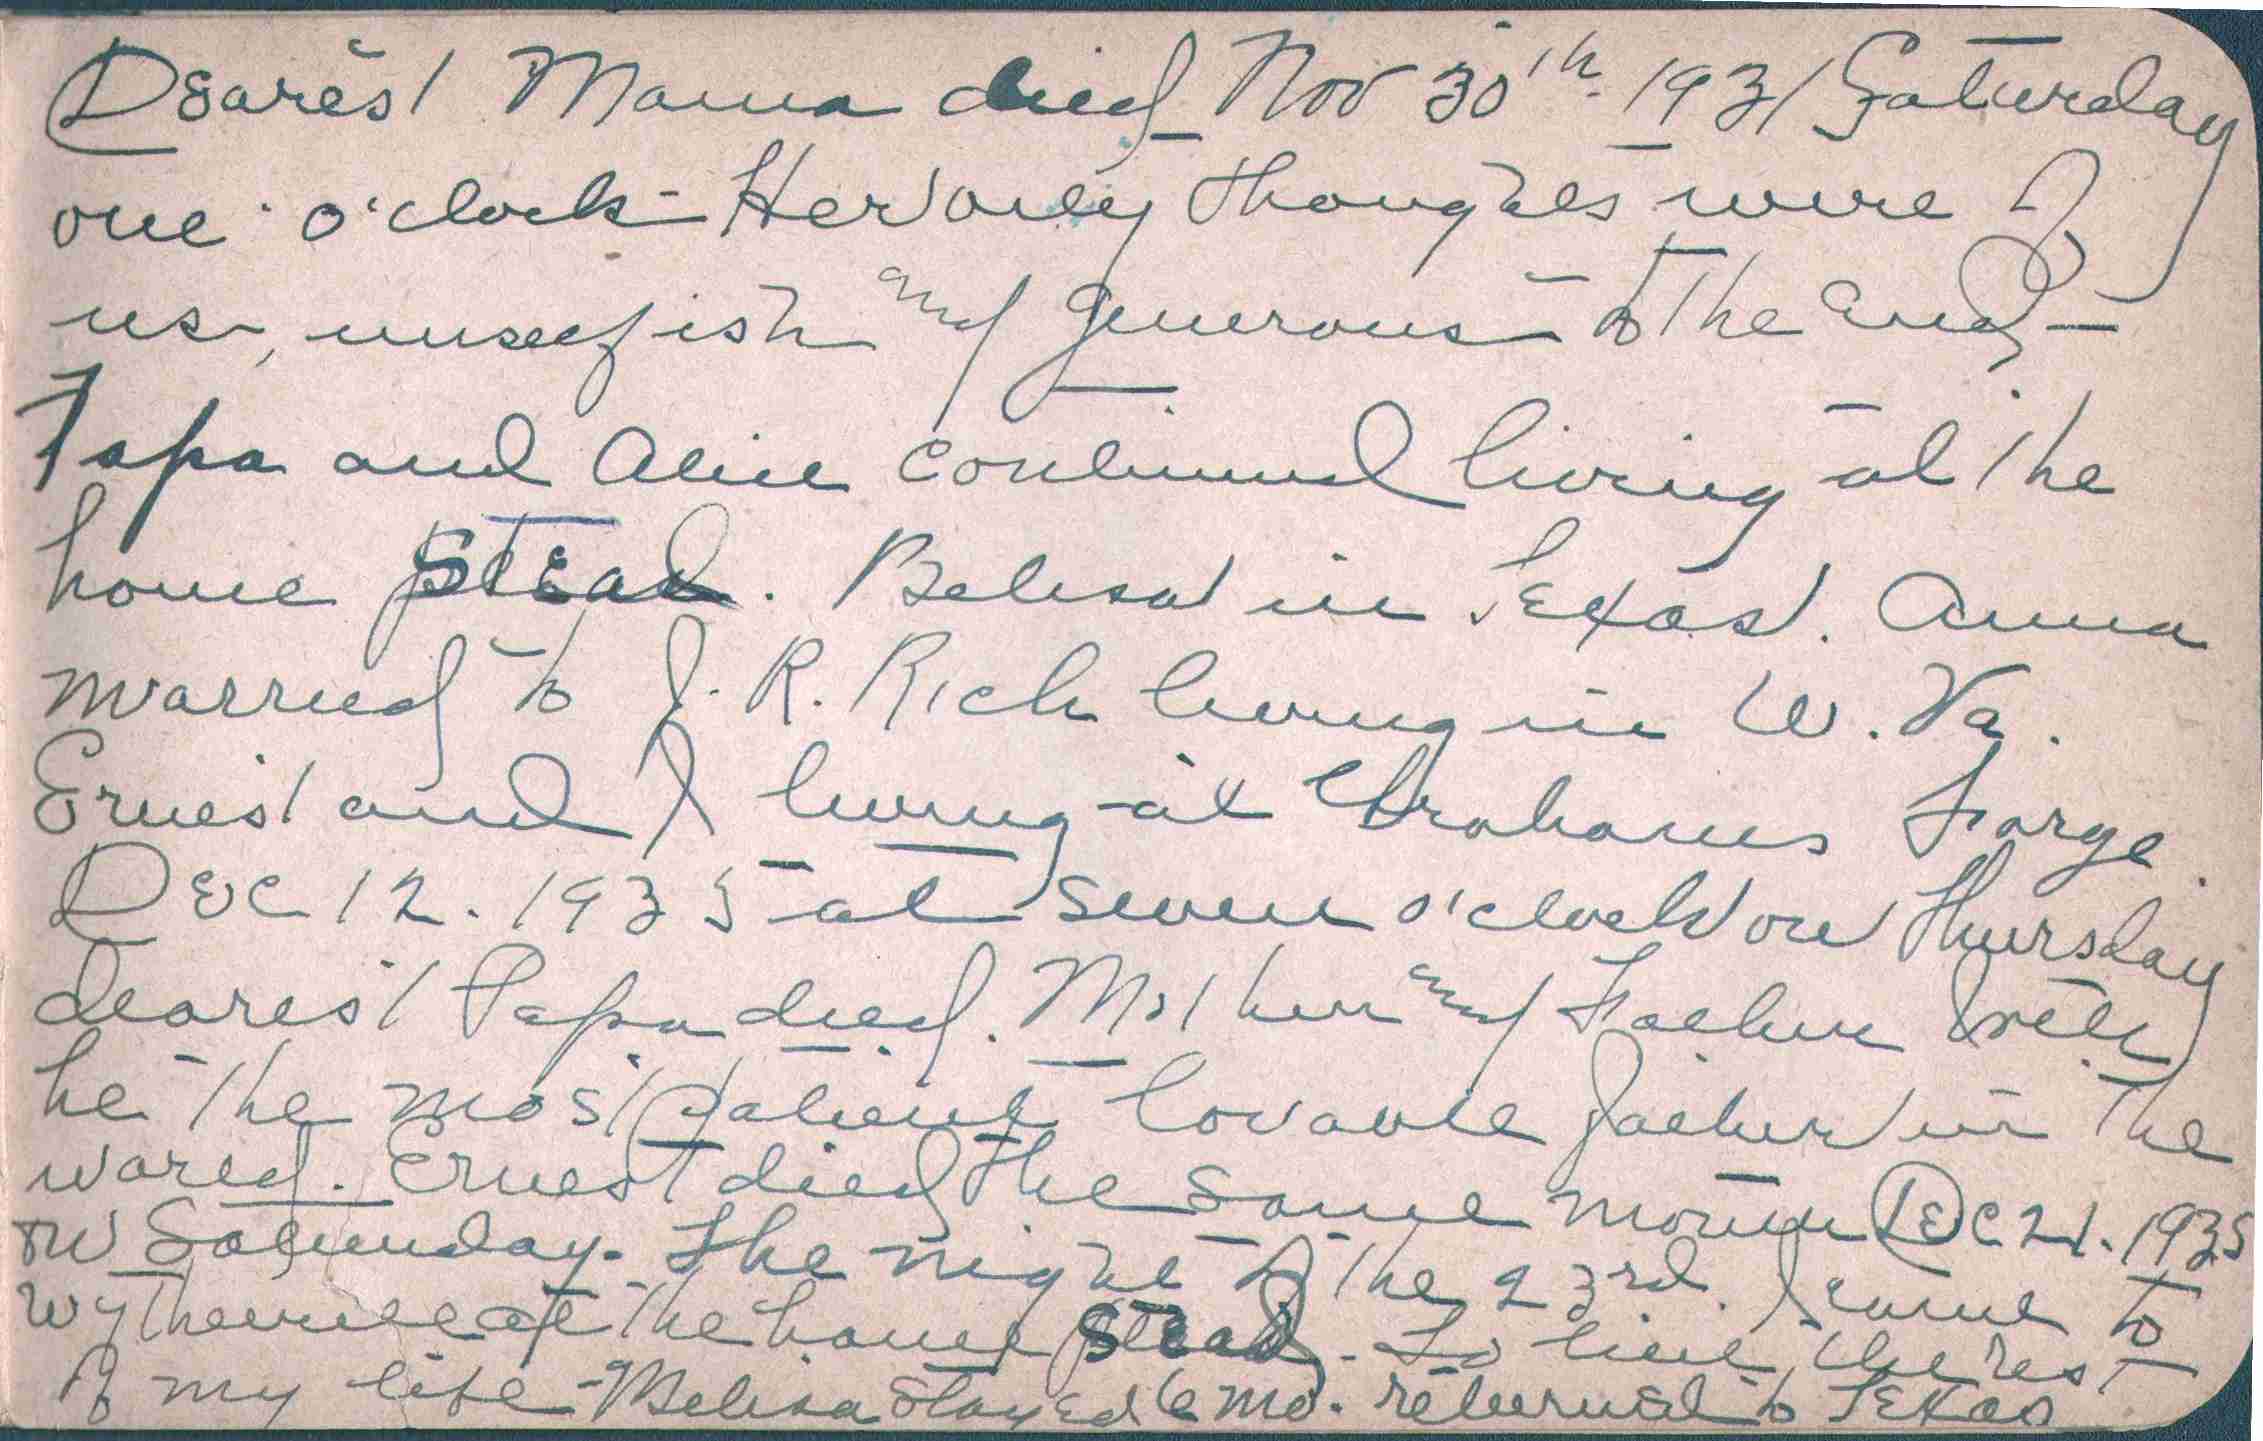 Dearest Mama died Nov 30th. 1931 Saturday
one o'clock - Her only thoughts were of
us, unselfish and generous to the end -
Papa and Alice continued living at the
home stead. Melisa in Texas. Anna
married to J. R. Rich living in W. Va.
Ernest and I living at Grahams Forge.
Dec 12. 1935 at seven o'clock on Thursday
dearest Papa died. Mother and Father both
he the most patient lovable father in the
world. Ernest died the same month Dec 21. 1935
on Saturday. The night of the 23rd. I came to
Wytheville at the home stead. To live the rest
of my life - Melisa stayed 6 mo. returned to Texas